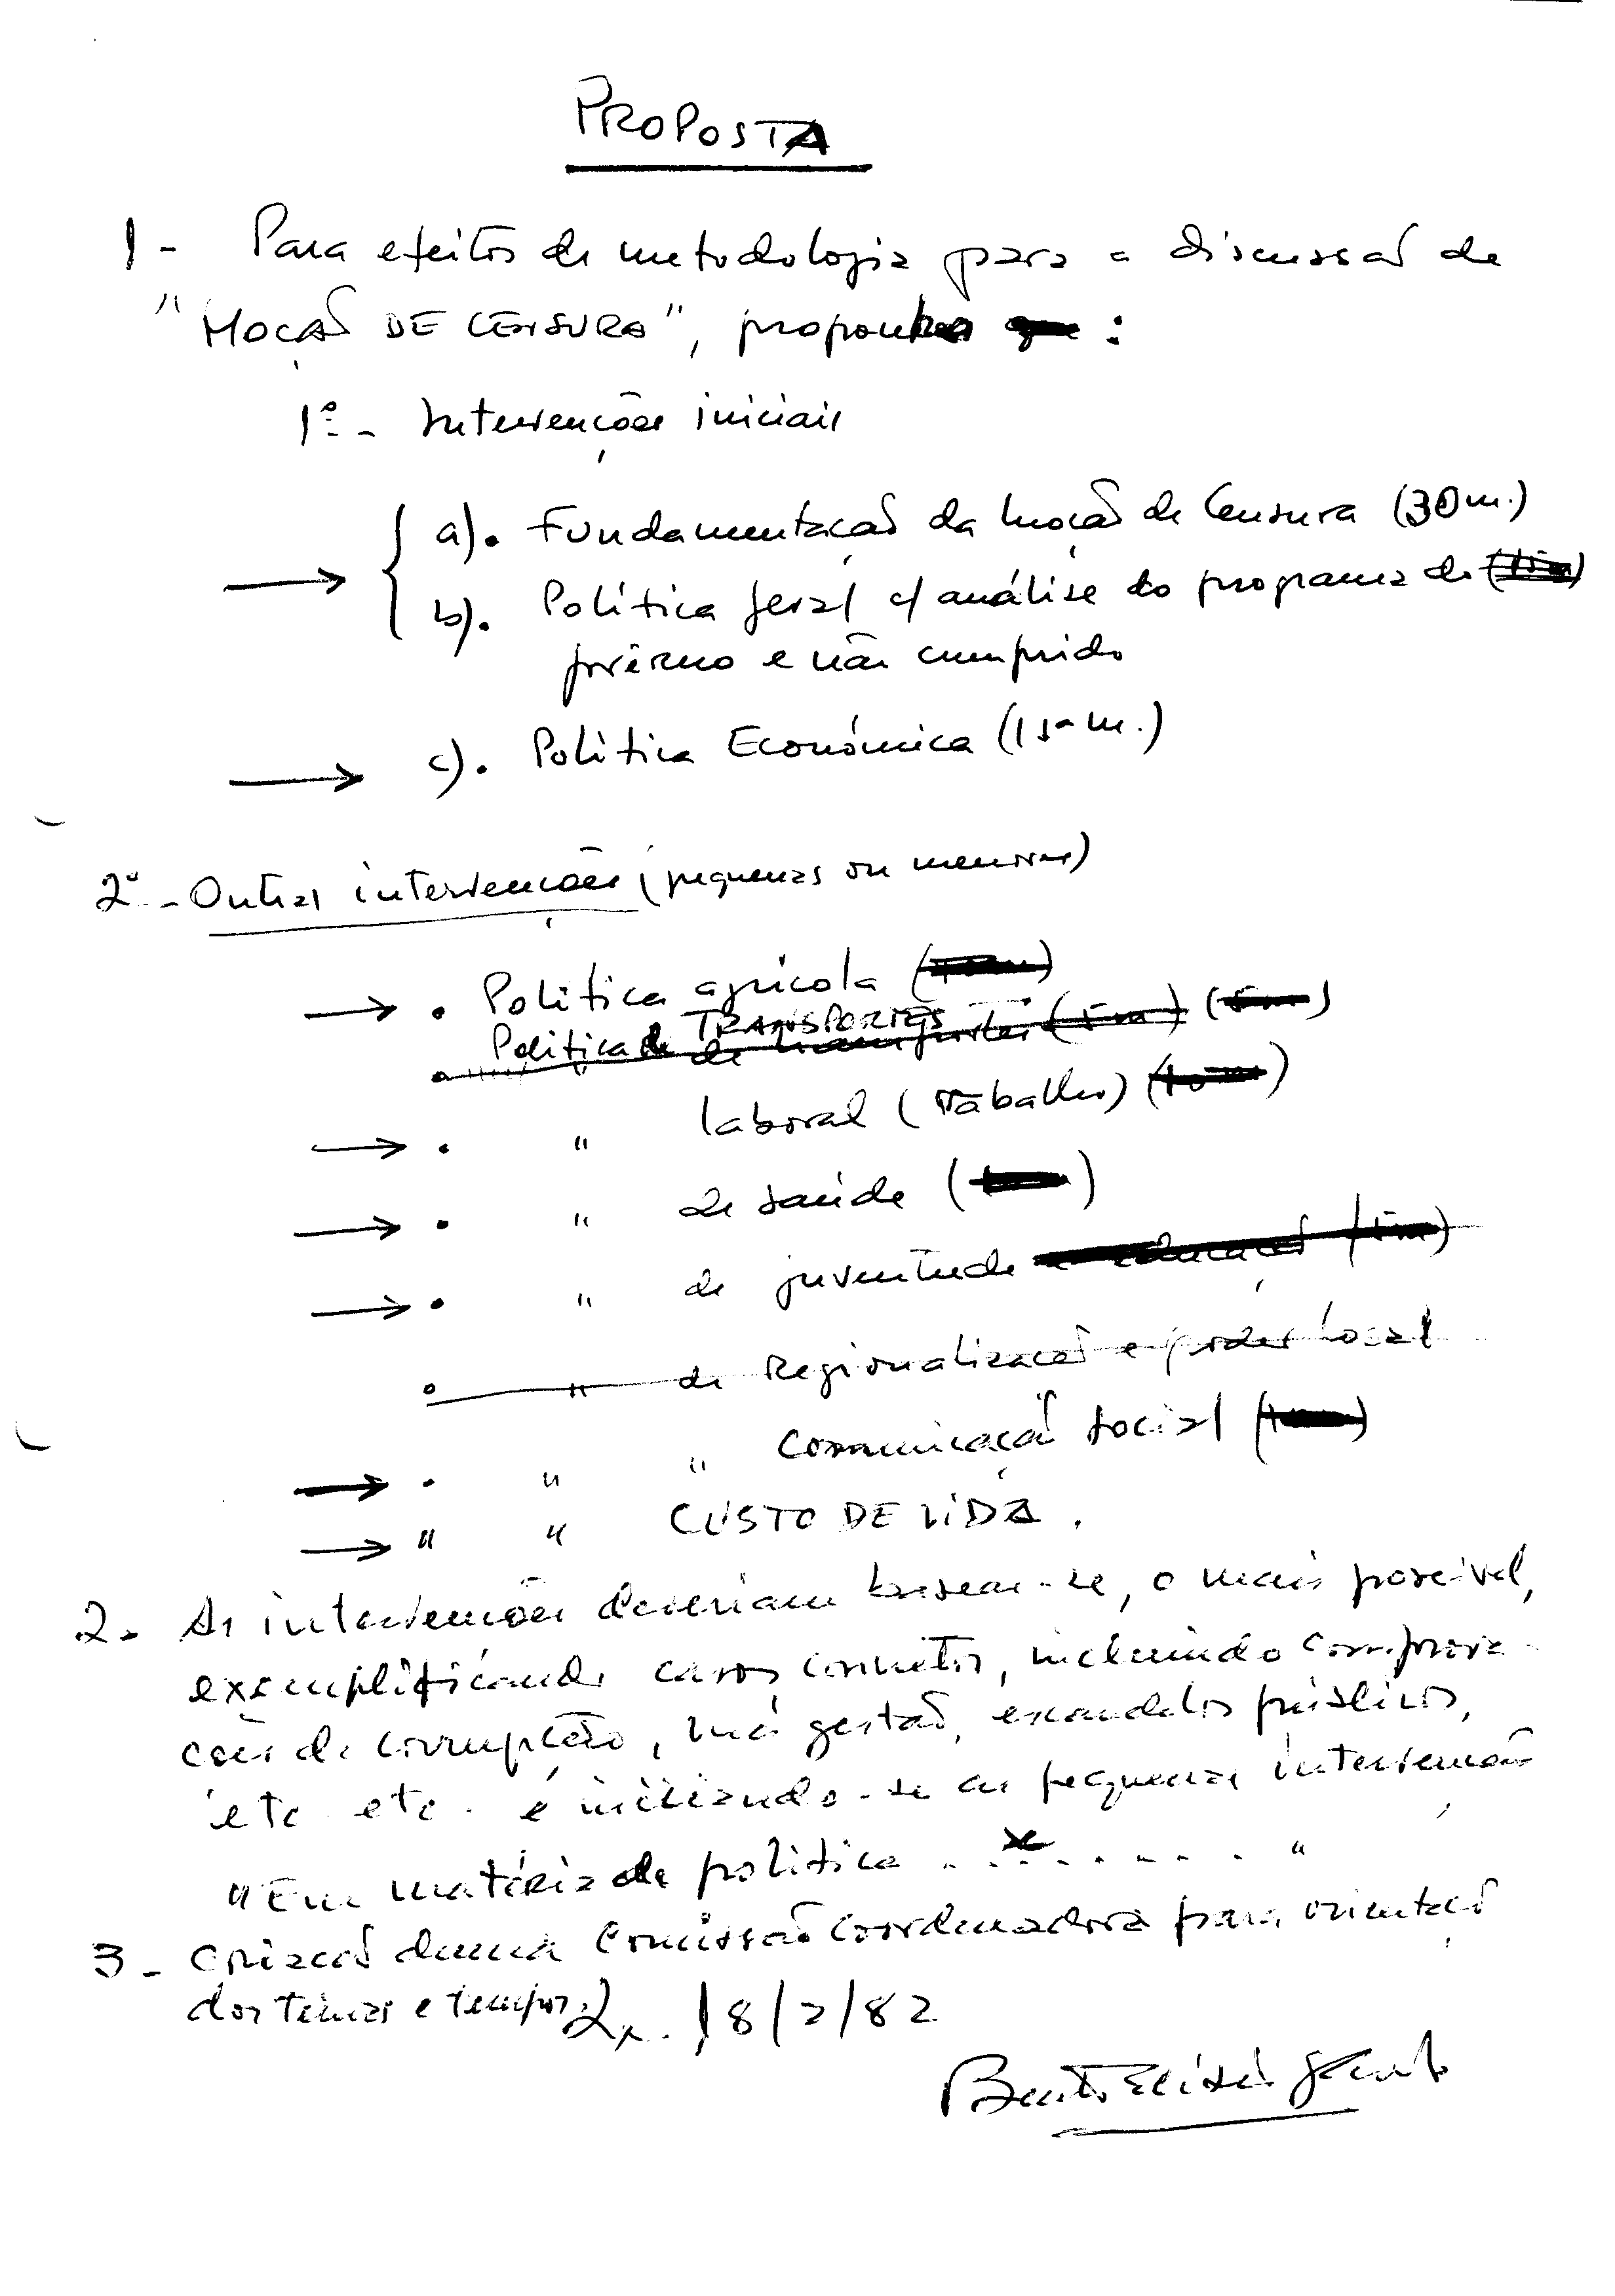 PROPOSTA
1 - Para efeitos de metodologia para a discussão de
"MOÇÃO DE CENSURA", proponho que :
1º - Intervenções iniciais
a). Fundamentação da Moção de Censura (30 m.)
b). Política geral c/ análise do programa do (15m)
govêrno e não cumprido
c). Política Económica (15 m.)
2º - Outras intervenções (pequenas ou menores)
→ • Política agrícola
Politica de TRANSPORTES de transportes (5m) (5m)
→ • " laboral (Trabalho) (10m)
→ • " de saúde
→ • " de juventude e educação (5m)
• " de Regionalização e poder local
→ • " " Comunicação social
→ " " CUSTO DE VIDA.
2 - As intervenções deveriam basear-se, o mais possível,
exemplificando casos concretos, incluindo comprova-
ções de corrupção, má gestão, escandalos públicos,
etc etc. e iniciando-se as pequenas intervenções
"Em matéria de politica . . . . . . . . "
3 - Criação duma Comissão Coordenadora para orientação
dos temas e tempos. Lx. 18/2/82
Bento Elísio de